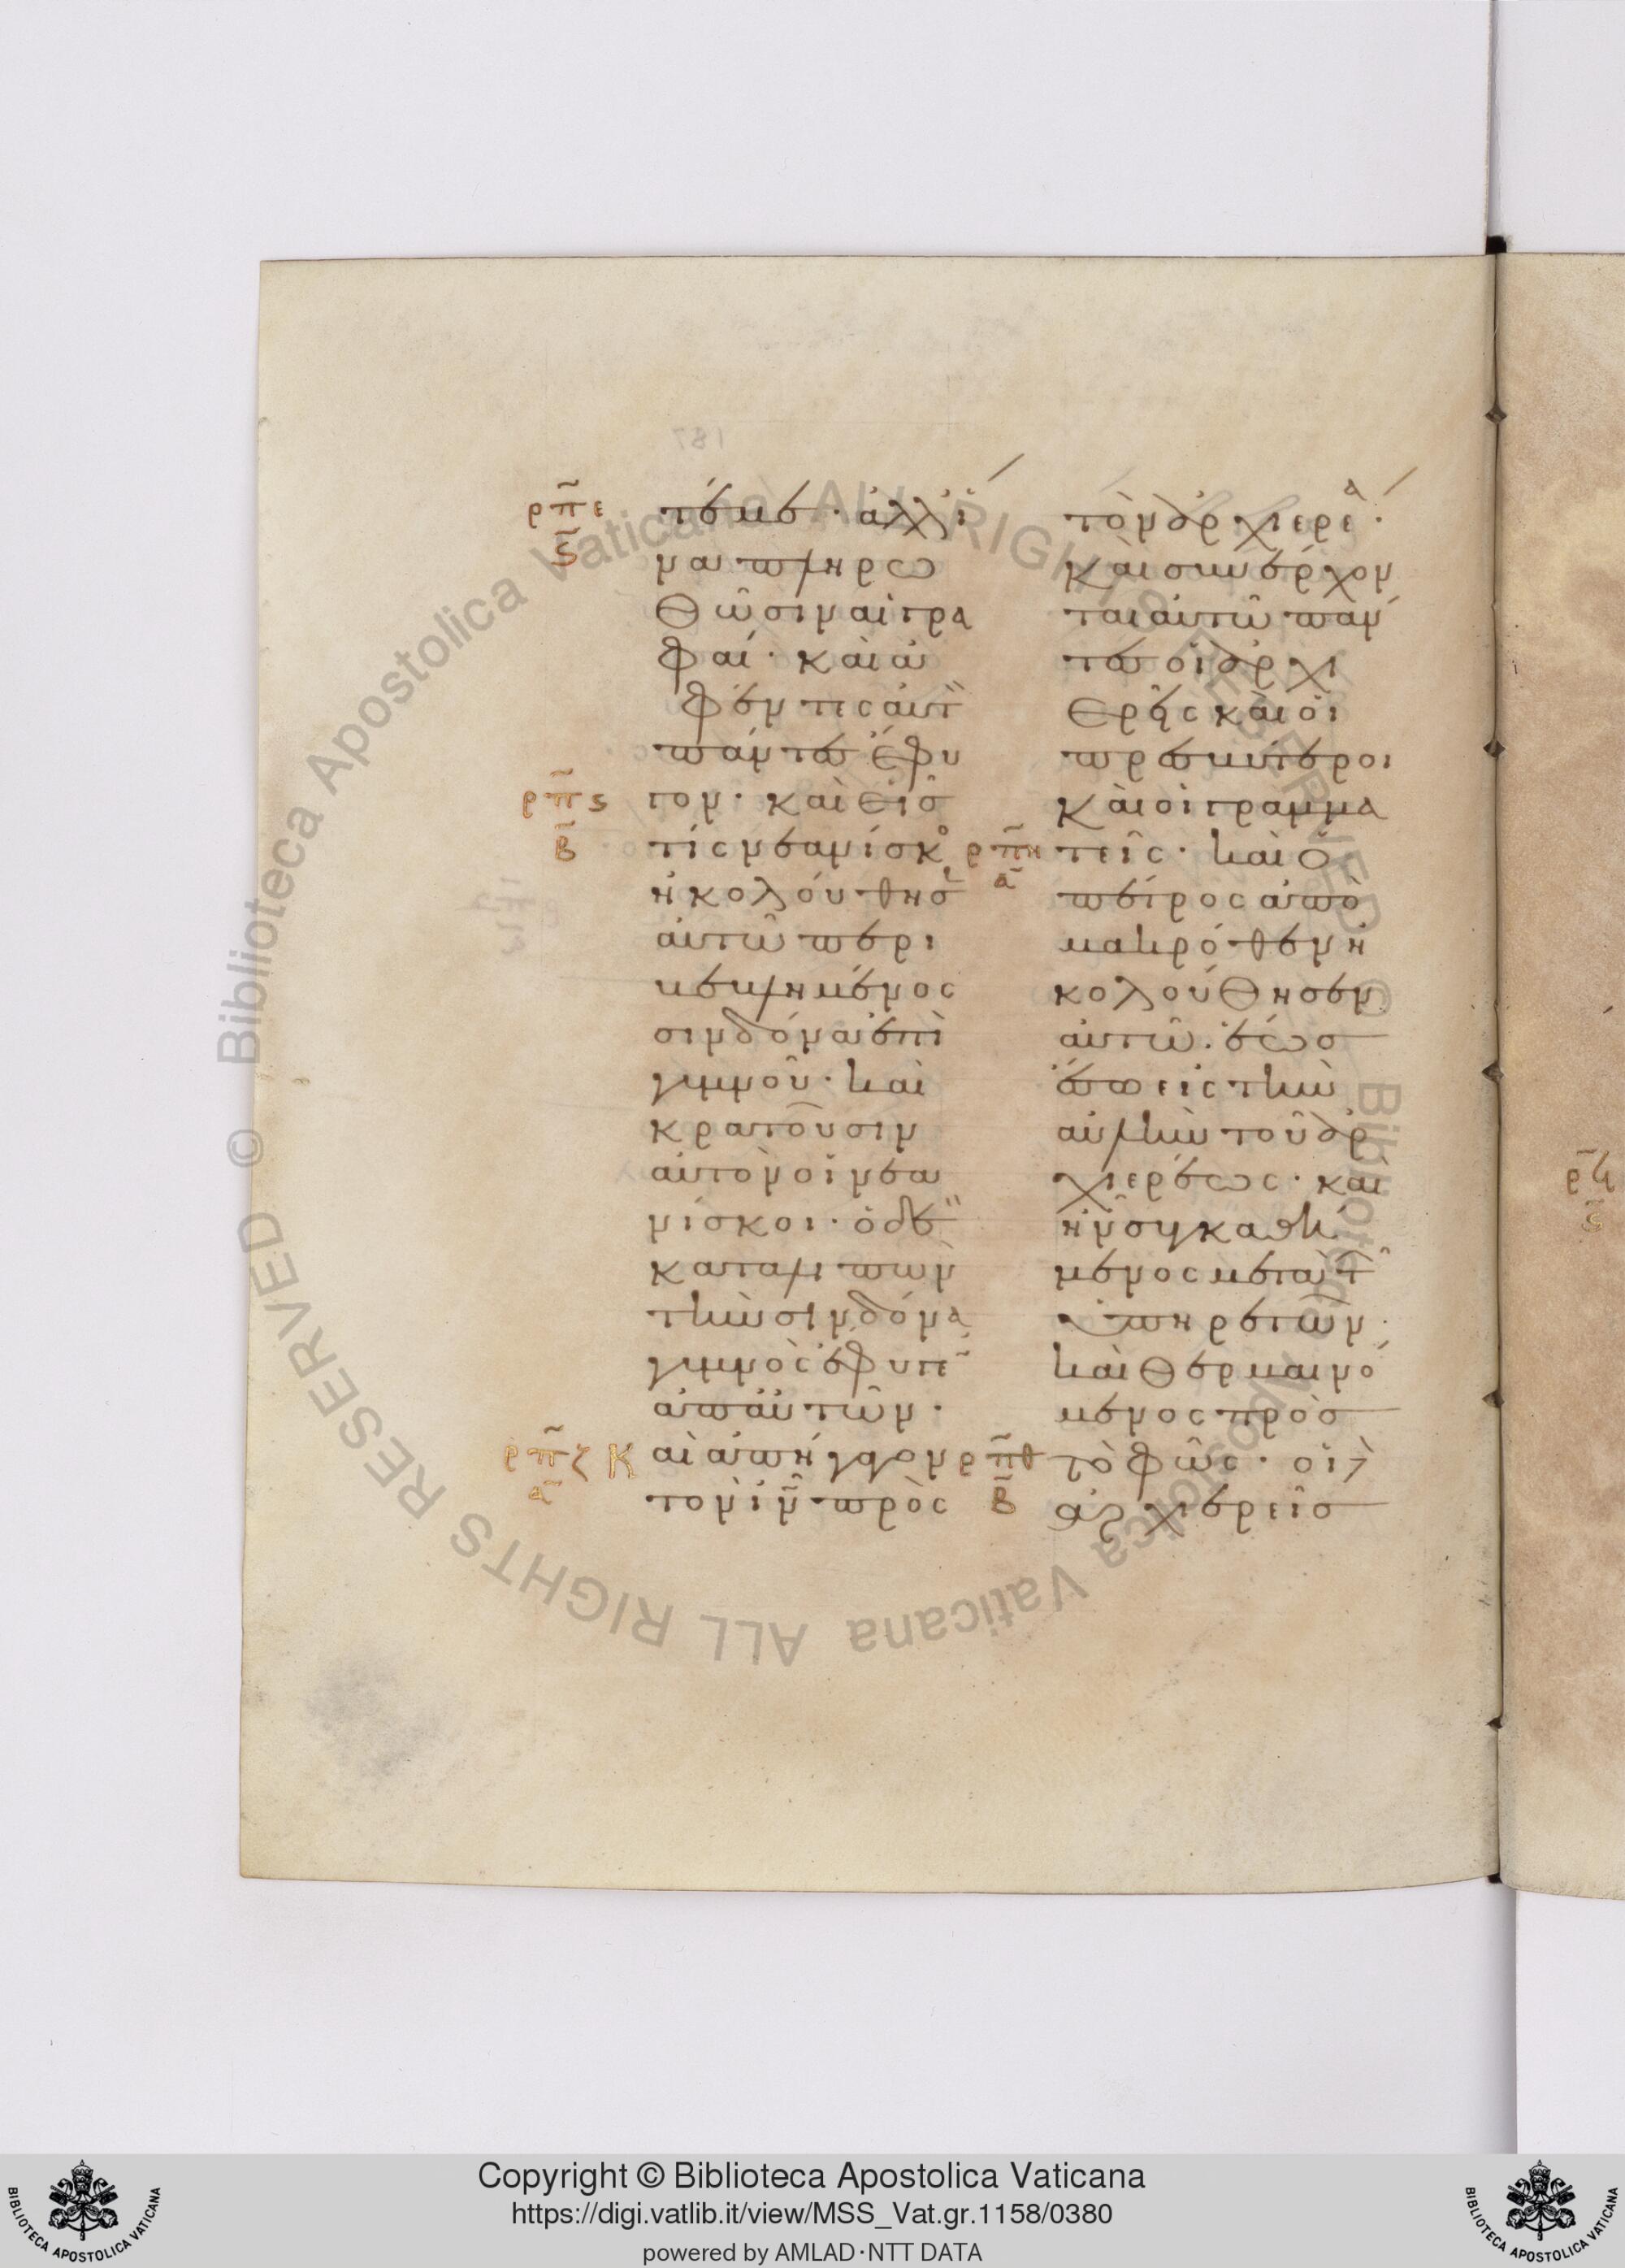 ρπε
ϛ
τέ με· ἀλλ ἵ
να πληρω
θῶσιν αἱ γρα
φαί· καὶ ἀ
φέντες αὐτ
πάντες ἔφυ
ρπϛ
β
γον· καὶ εἷσ
τίς νεανίσκο
ἠκολούθησ
αὐτῶ περι
βεβλημένος
σινδόνα ἐπὶ
γυμνοῦ· καὶ
κρατοῦσιν
αὐτὸν οἱ νεα
νίσκοι· ὁ δὲ
καταλιπὼν
τὴν σινδόνα
γυμνὸς ἔφυγε
ἀπ αὐτῶν·
ρπζ
α
Καὶ ἀπήγαγον
τὸν ιν πρὸς
τὸν ἀρχιερέα·
καὶ συνέρχον
ται αὐτῶ πάν
τες οἱ ἀρχι
ερεῖς καὶ οἱ
πρεσβύτεροι
καὶ οἱ γραμμα
ρπη
α
τεῖς· καὶ ὁ
πέτρος ἀπὸ
μακρόθεν ἠ
κολούθησεν
αὐτῶ· ἕως
ἔσω εἰς τὴν
αὐλὴν τοῦ ἀρ
χιερέως· καὶ
ἦν συγκαθή
μενος μετὰ τ
ὑπηρετῶν·
καὶ θερμαινό
μενος πρὸσ
ρπθ
β
τὸ φῶς· οἱ
ἀρχιερεῖσ
187
ALL RIGHTS RESERVED © Biblioteca Apostolica Vaticana
Copyright © Biblioteca Apostolica Vaticana
https://digi.vatlib.it/view/MSS_Vat.gr.1158/0380
powered by AMLAD·NTT DATA
BIBLIOTECA APOSTOLICA VATICANA
BIBLIOTECA APOSTOLICA VATICANA